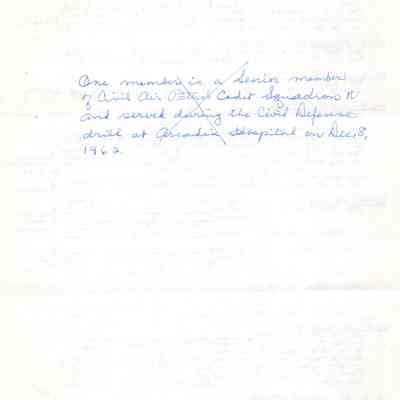 One member is a Senior member
of Civil Air Patrol Cadet Squadron
and served during the Civil Defense
drill at Arcadia Hospital on Dec. 8,
1962